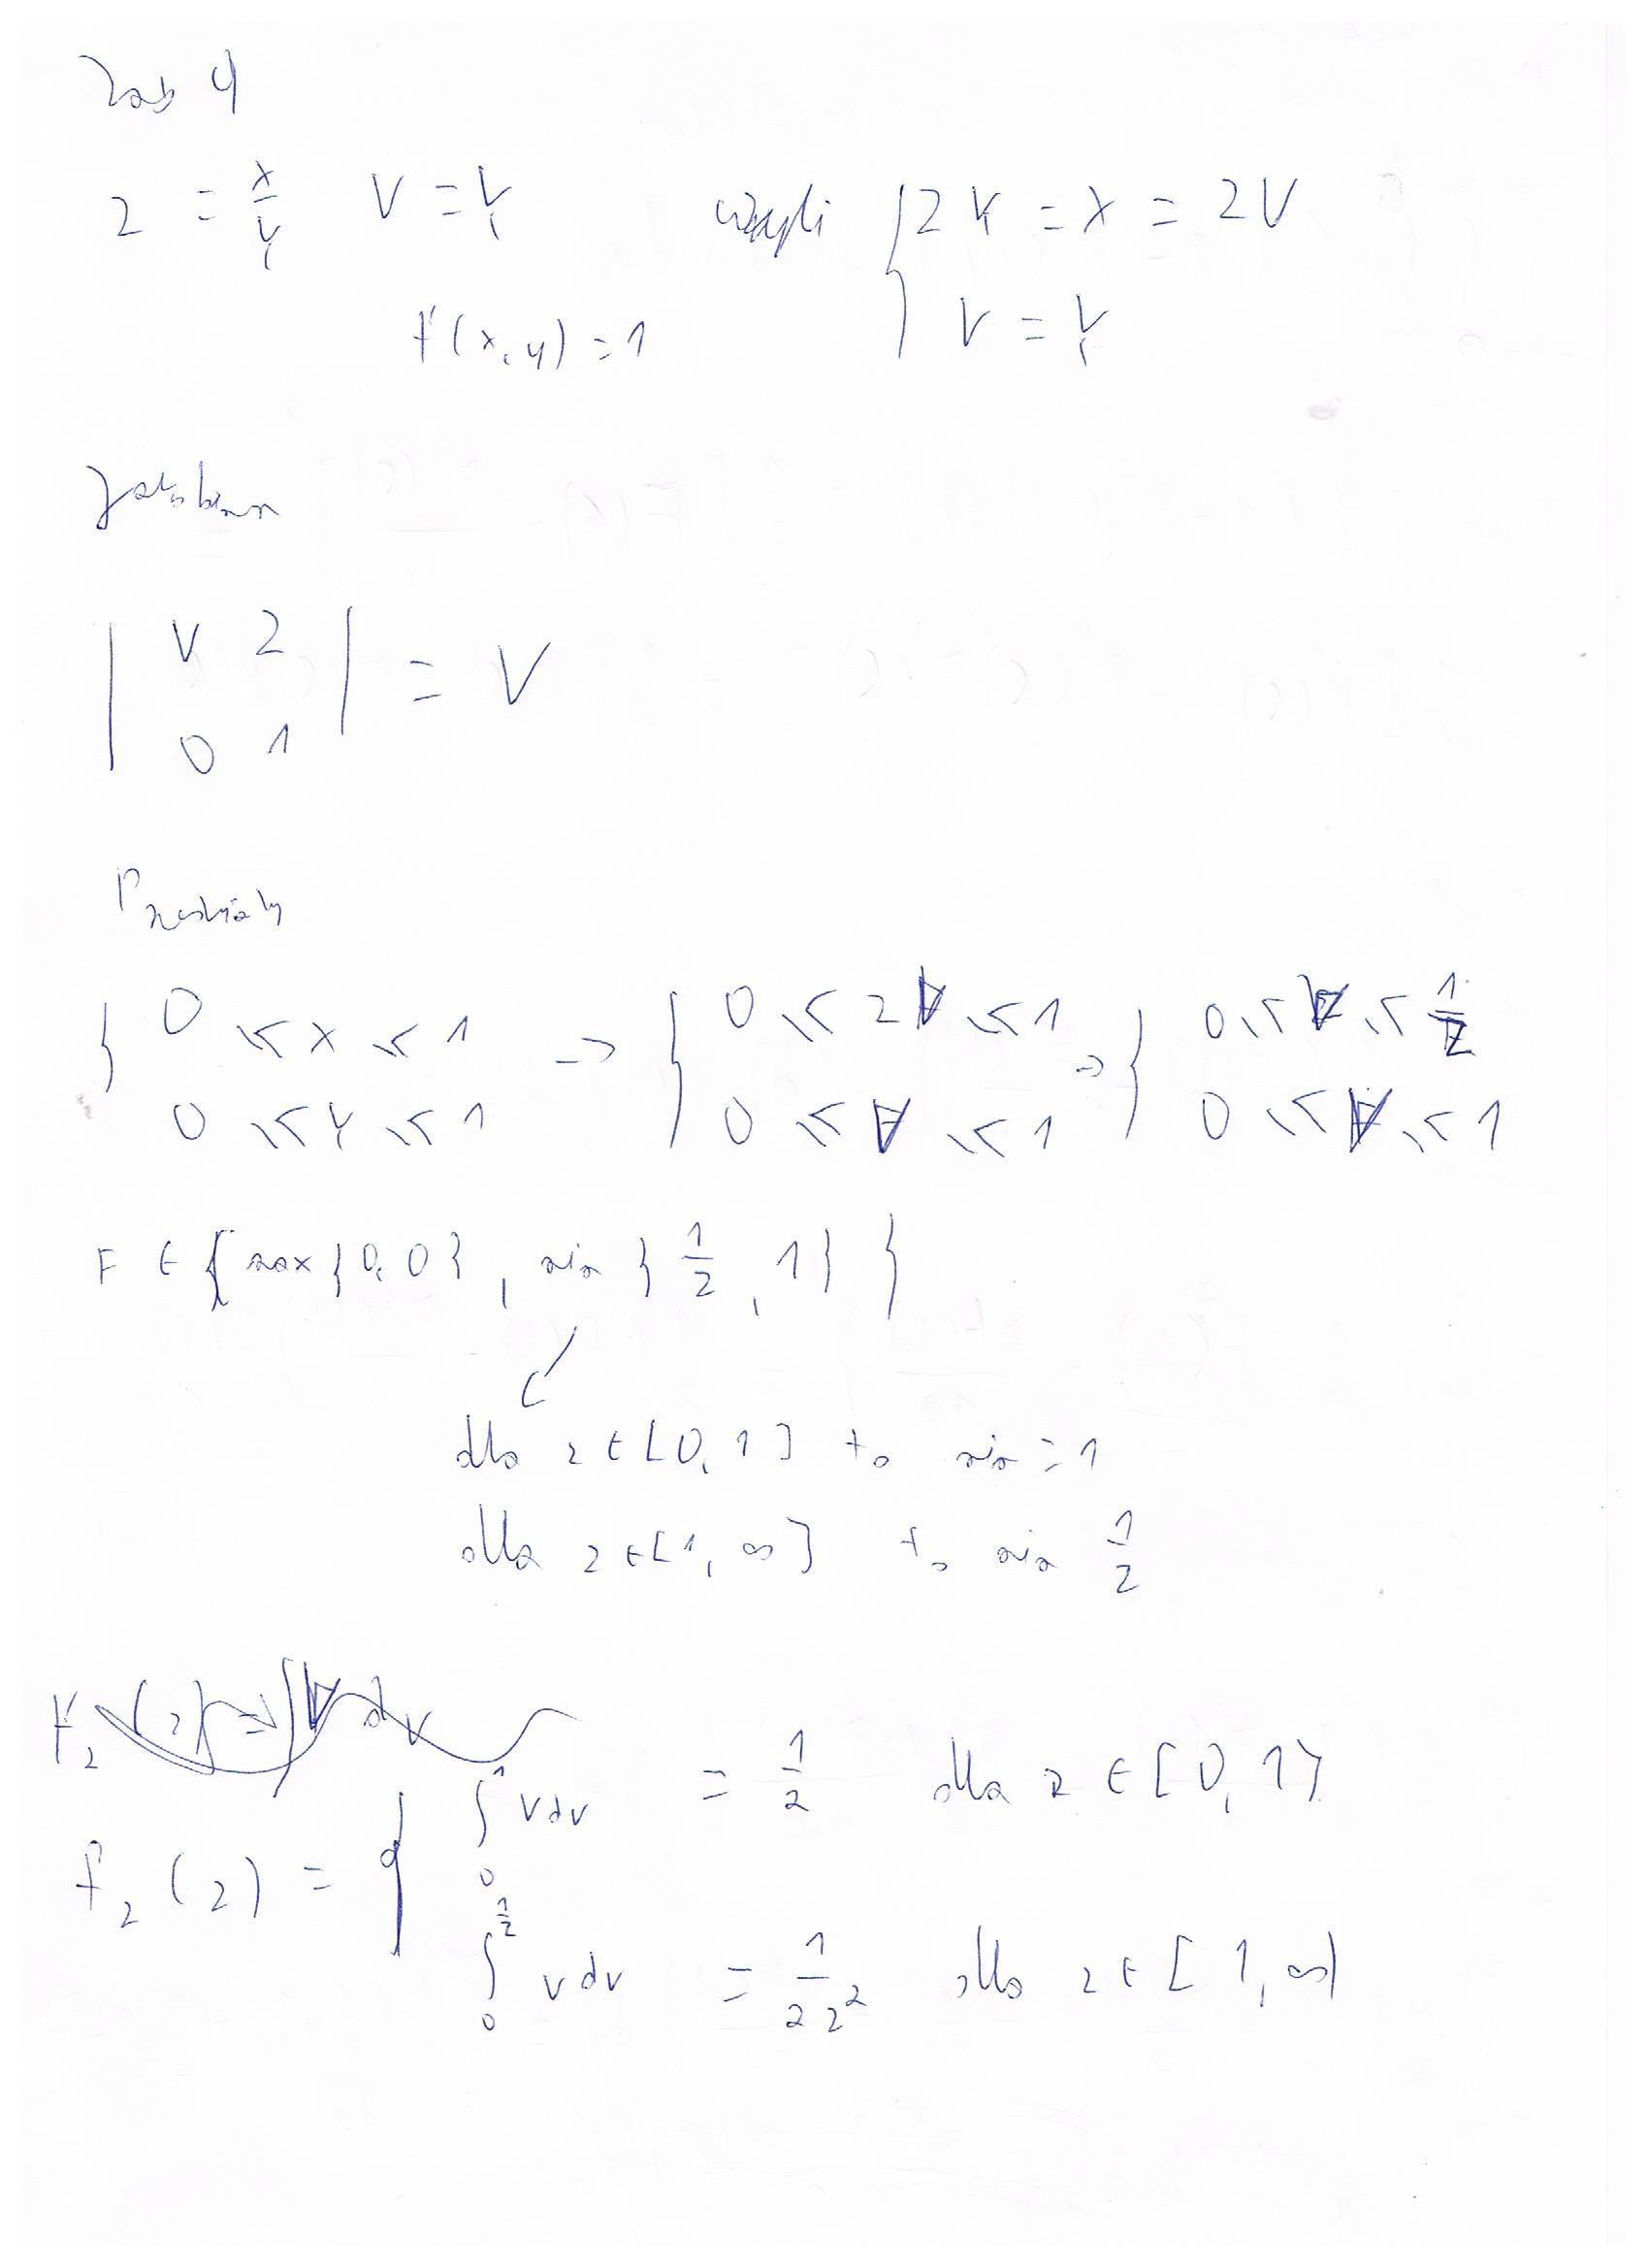 Zad 4
Z = X/Y V = Y czyli { ZY = X = ZV
f(x,y) = 1 V = Y
Jakobian
| V Z |
| 0 1 | = V
Przedziały
{ 0 ≤ X ≤ 1 -> { 0 ≤ ZV ≤ 1 => { 0 ≤ V ≤ 1/Z
0 ≤ Y ≤ 1 0 ≤ V ≤ 1 0 ≤ V ≤ 1
F ∈ { max{0,0}, min{1/Z, 1} }
dla z ∈ [0,1] to min = 1
dla z ∈ [1,∞] to min 1/Z
f_Z(z) = { ∫_0^1 v dv = 1/2 dla z ∈ [0,1)
∫_0^{1/Z} v dv = 1/(2z²) dla z ∈ [1,∞)